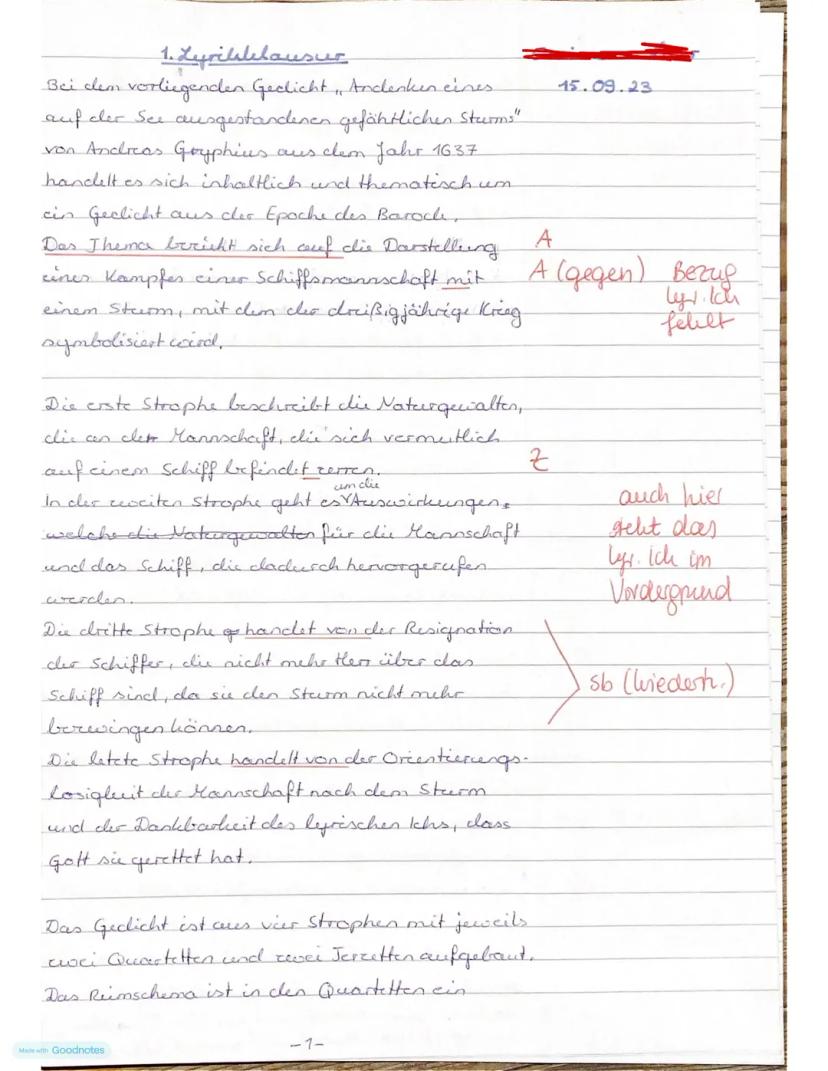 1. Lyrikklausur
Bei dem vorliegenden Gedicht „Andenken eines
15.09.23
auf der See ausgestandenen gefährlichen Sturms"
von Andreas Gryphius aus dem Jahr 1637
handelt es sich inhaltlich und thematisch um
ein Gedicht aus der Epoche des Barock.
Das Thema bezieht sich auf die Darstellung
A
eines Kampfes einer Schiffsmannschaft mit
A (gegen)
Bezug
lyr. Ich
fehlt
einem Sturm, mit dem der dreißigjährige Krieg
symbolisiert wird.
Die erste Strophe beschreibt die Naturgewalten,
die an der Mannschaft, die sich vermutlich
auf einem Schiff befindet zerren.
Z
In der zweiten Strophe geht es um die Auswirkungen,
welche die Naturgewalten für die Mannschaft
und das Schiff, die dadurch hervorgerufen
werden.
auch hier
steht das
lyr. Ich im
Vordergrund
Die dritte Strophe handelt von der Resignation
der Schiffer, die nicht mehr Herr über das
Schiff sind, da sie den Sturm nicht mehr
bezwingen können.
Sb (Wiederh.)
Die letzte Strophe handelt von der Orientierungs-
losigkeit der Mannschaft nach dem Sturm
und der Dankbarkeit des lyrischen Ichs, dass
Gott sie gerettet hat.
Das Gedicht ist aus vier Strophen mit jeweils
zwei Quartetten und zwei Terzetten aufgebaut.
Das Reimschema ist in den Quartetten ein
-1-
Made with Goodnotes